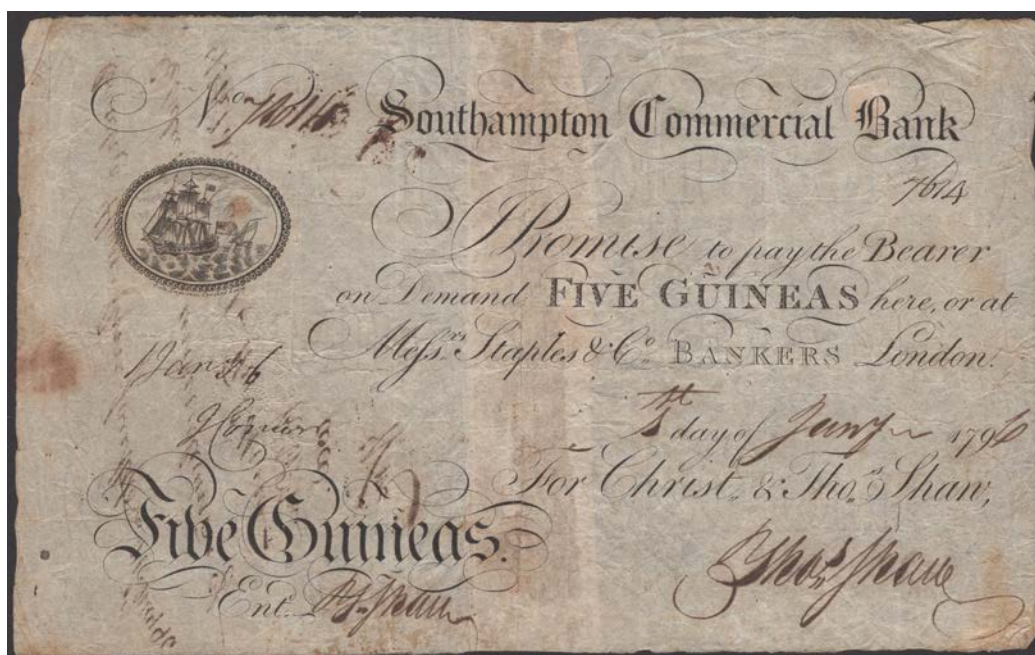 No. 7614 Southampton Commercial Bank
7614
I Promise to pay the Bearer
on Demand FIVE GUINEAS here, or at
Messrs. Staples & Co. BANKERS London.
day of Jany 1796
For Christ. & Thos. Shaw,
Five Guineas.
Thos. Shaw
Ent. Shaw